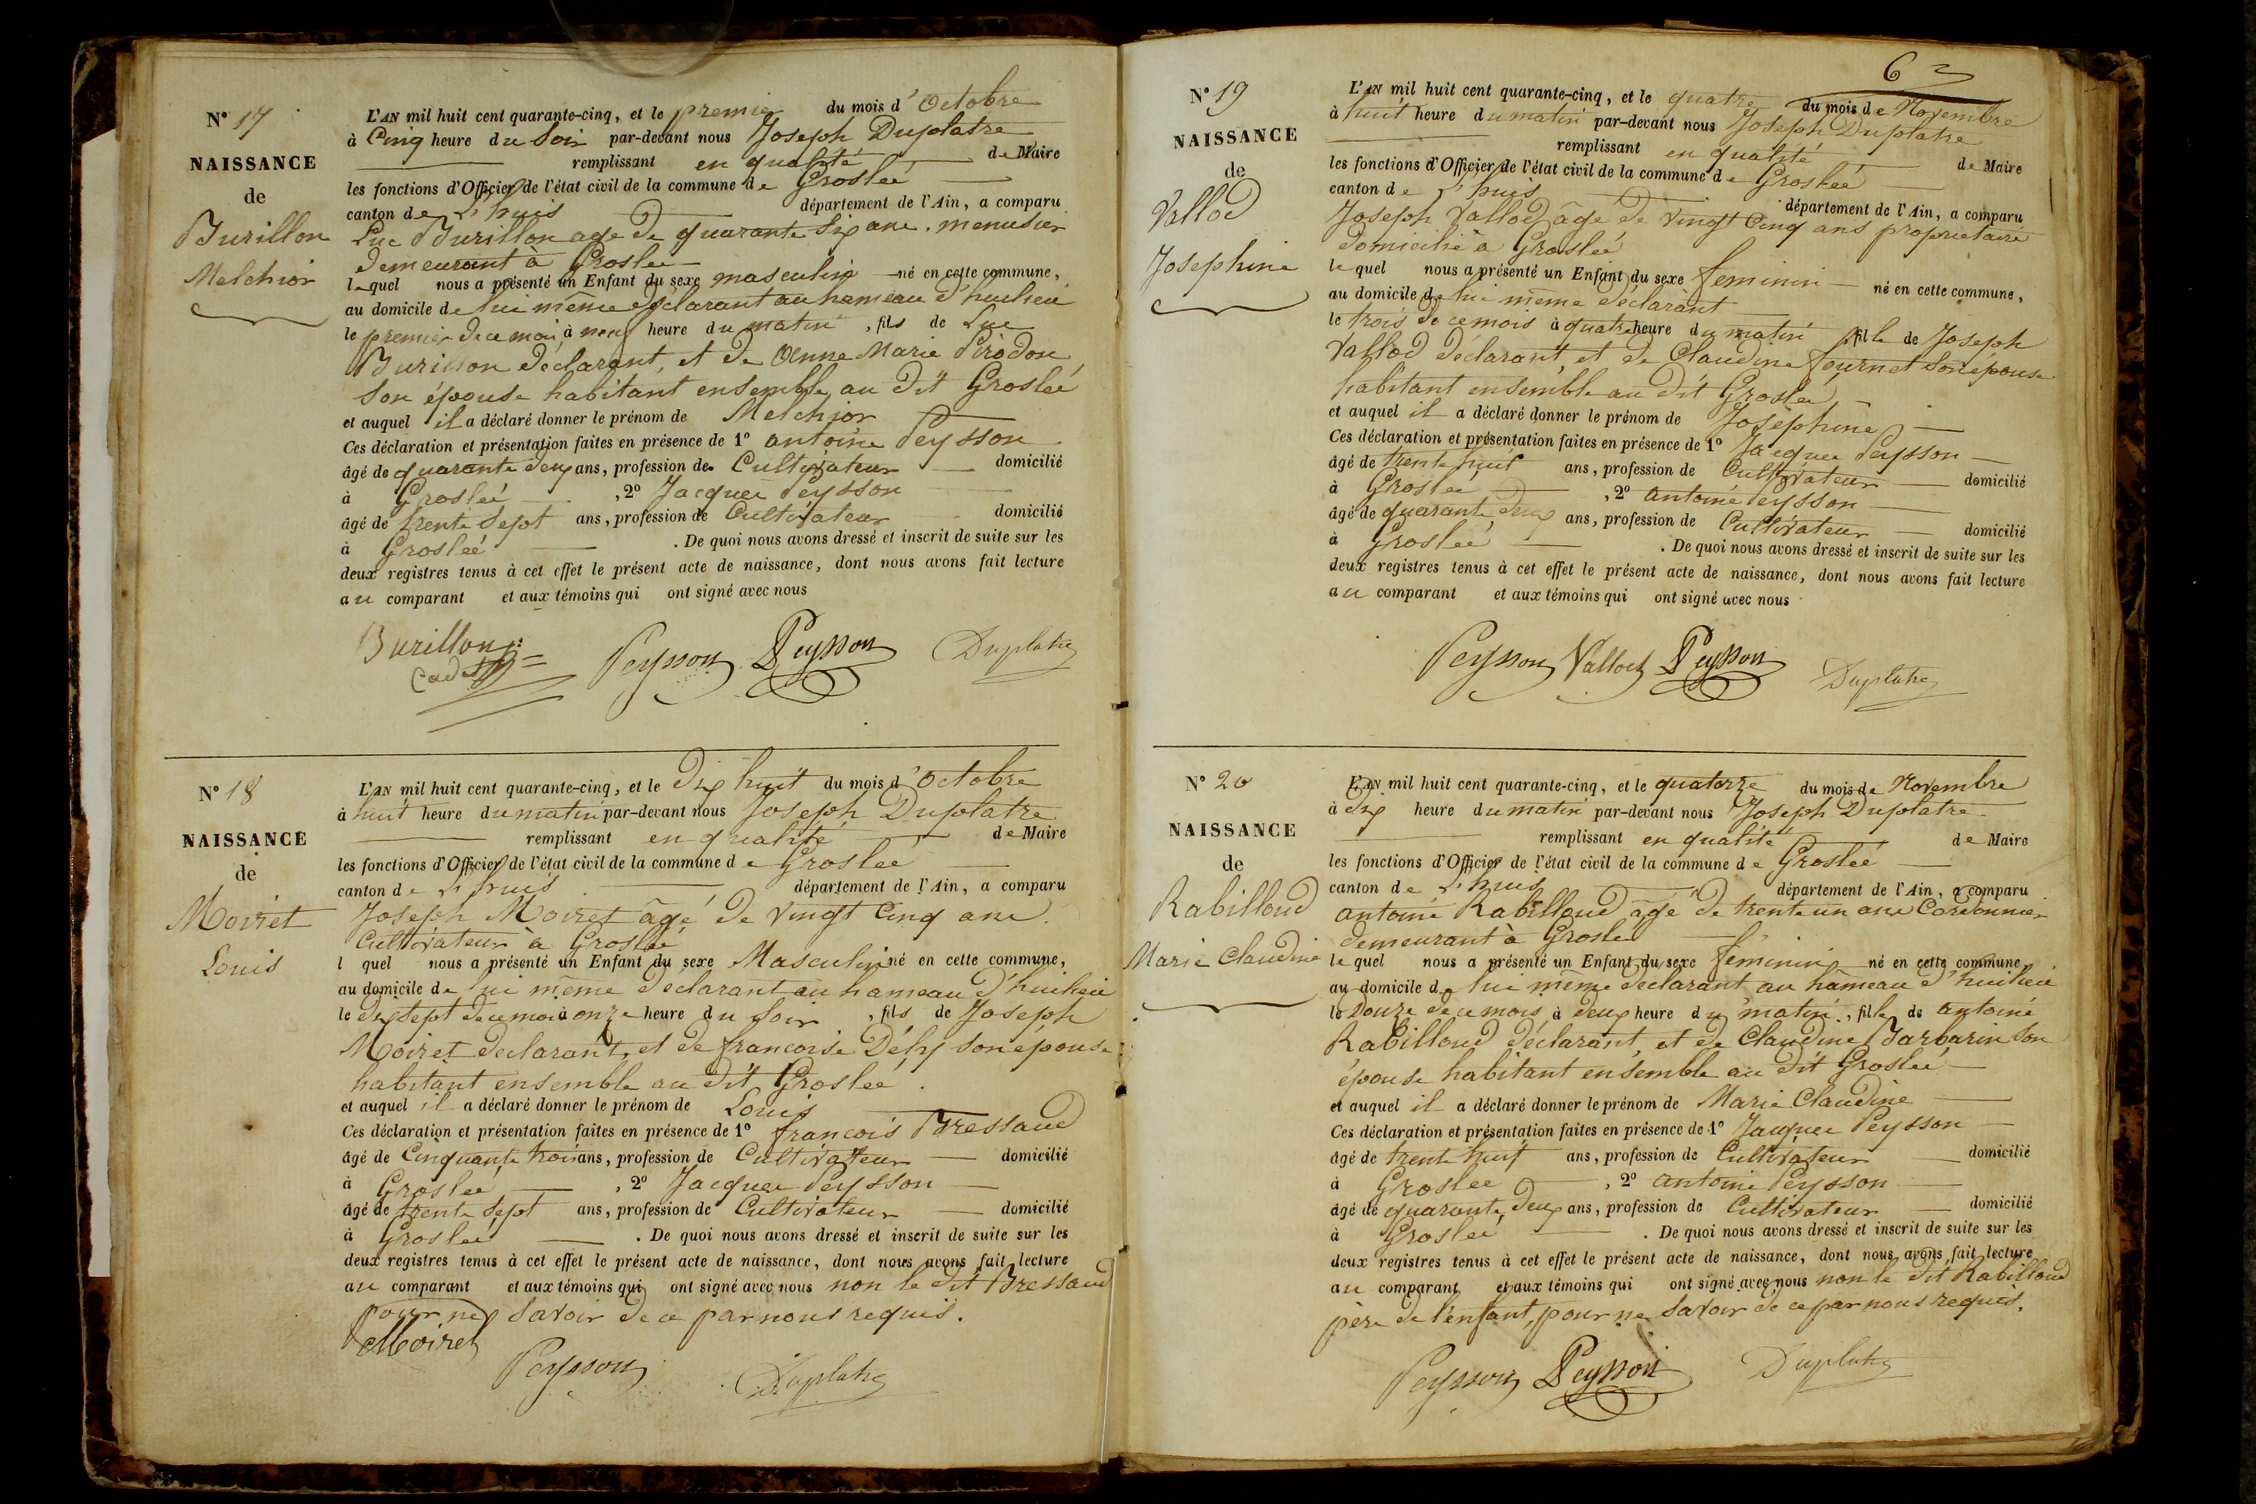 N° 17
NAISSANCE
de
Burillon
Melchior
L'AN mil huit cent quarante-cinq, et le premier du mois d'Octobre
à Cinq heure du Soir par-devant nous Joseph Duplatre
remplissant en qualité de Maire
les fonctions d'Officier de l'état civil de la commune de Groslée
canton de L'huis département de l'Ain, a comparu
Luc Burillon age de quarante Six ans. menusier
demeurant à Groslee
lequel nous a présenté un Enfant du sexe masculin né en cette commune,
au domicile de lui même déclarant au hameau d'huilieu
le premier de ce mois à neuf heure du matin, fils de Luc
Burillon déclarant, et de Anne Marie Pirodon
Son épouse habitant ensemble au dit Groslée
et auquel il a déclaré donner le prénom de Melchior
Ces déclaration et présentation faites en présence de 1° antoine Peysson
âgé de quarante deux ans, profession de Cultivateur domicilié
à Groslée, 2° Jacques Peysson
âgé de trente Sept ans, profession de Cultivateur domicilié
à Groslée. De quoi nous avons dressé et inscrit de suite sur les
deux registres tenus à cet effet le présent acte de naissance, dont nous avons fait lecture
au comparant et aux témoins qui ont signé avec nous
Burillon
Peysson Peysson Duplatre
N° 18
NAISSANCE
de
Moiret
Louis
L'AN mil huit cent quarante-cinq, et le dix huit du mois d'Octobre
à huit heure du matin par-devant nous Joseph Duplatre
remplissant en qualité de Maire
les fonctions d'Officier de l'état civil de la commune de Groslée
canton de L'huis département de l'Ain, a comparu
Joseph Moiret âgé de vingt Cinq ans.
Cultivateur à Groslée
l quel nous a présenté un Enfant du sexe Masculin né en cette commune,
au domicile de lui même déclarant au hameau d'huilieu
le dix sept de ce mois à onze heure du Soir, fils de Joseph
Moiret declarant, et de francoise Déhy son épouse
habitant ensemble au dit Groslée.
et auquel il a déclaré donner le prénom de Louis
Ces déclaration et présentation faites en présence de 1° francois Bressaud
âgé de Cinquante trois ans, profession de Cultivateur domicilié
à Groslée, 2° Jacques Peysson
âgé de trente Sept ans, profession de Cultivateur domicilié
à Groslée. De quoi nous avons dressé et inscrit de suite sur les
deux registres tenus à cet effet le présent acte de naissance, dont nous avons fait lecture
au comparant et aux témoins qui ont signé avec nous non le dit Bressaud
pour ne Savoir de ce par nous requis.
Moiret
Peysson Duplatre
6
N° 19
NAISSANCE
de
Vallod
Josephine
L'AN mil huit cent quarante-cinq, et le quatre du mois de Novembre
à huit heure du matin par-devant nous Joseph Duplatre
remplissant en qualité de Maire
les fonctions d'Officier de l'état civil de la commune de Groslée
canton de L'huis département de l'Ain, a comparu
Joseph Vallod âgé de vingt Cinq ans propriétaire
domicilié à Groslée
lequel nous a présenté un Enfant du sexe feminin né en cette commune,
au domicile de lui même déclarant
le trois de ce mois à quatre heure du matin fille de Joseph
Vallod déclarant et de Claudine fournet son épouse
habitant ensemble au dit Groslée
et auquel il a déclaré donner le prénom de Joséphine
Ces déclaration et présentation faites en présence de 1° Jacques Peysson
âgé de trente huit ans, profession de Cultivateur domicilié
à Groslée, 2° antoine Peysson
âgé de quarante deux ans, profession de Cultivateur domicilié
à Groslée. De quoi nous avons dressé et inscrit de suite sur les
deux registres tenus à cet effet le présent acte de naissance, dont nous avons fait lecture
au comparant et aux témoins qui ont signé avec nous
Peysson Vallod Peysson Duplatre
N° 20
NAISSANCE
de
Rabilloud
Marie Claudine
L'AN mil huit cent quarante-cinq, et le quatorze du mois de Novembre
à dix heure du matin par-devant nous Joseph Duplatre
remplissant en qualité de Maire
les fonctions d'Officier de l'état civil de la commune de Groslée
canton de L'huis département de l'Ain, a comparu
antoine Rabilloud âgé de trente un ans Cordonnier
demeurant à Groslée
lequel nous a présenté un Enfant du sexe féminin né en cette commune,
au domicile de lui même déclarant au hâmeau d'huilieu
le Douze de ce mois à deux heure du matin, fille de antoine
Rabilloud déclarant, et de Claudine Barbarin son
épouse habitant ensemble au dit Groslée
et auquel il a déclaré donner le prénom de Marie Claudine
Ces déclaration et présentation faites en présence de 1° Jacques Peysson
âgé de trente huit ans, profession de Cultivateur domicilié
à Groslee, 2° antoine Peysson
âgé de quarante deux ans, profession de Cultivateur domicilié
à Groslée. De quoi nous avons dressé et inscrit de suite sur les
deux registres tenus à cet effet le présent acte de naissance, dont nous avons fait lecture
au comparant et aux témoins qui ont signé avec nous non le dit Rabilloud
père de l'enfant, pour ne Savoir de ce par nous requis.
Peysson Peysson Duplatre